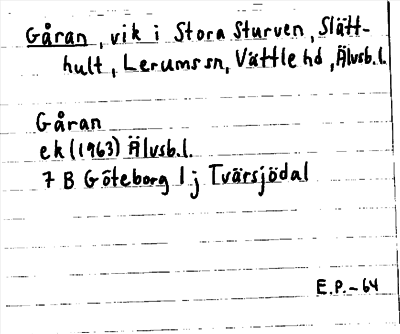 Gåran, vik i Stora Sturven, Slätt-
hult, Lerums sn, Vättle hd, Älvsb.l.
Gåran
ek (1963) Älvsb.l.
7 B Göteborg 1 j Tvärsjödal
E.P. – 64